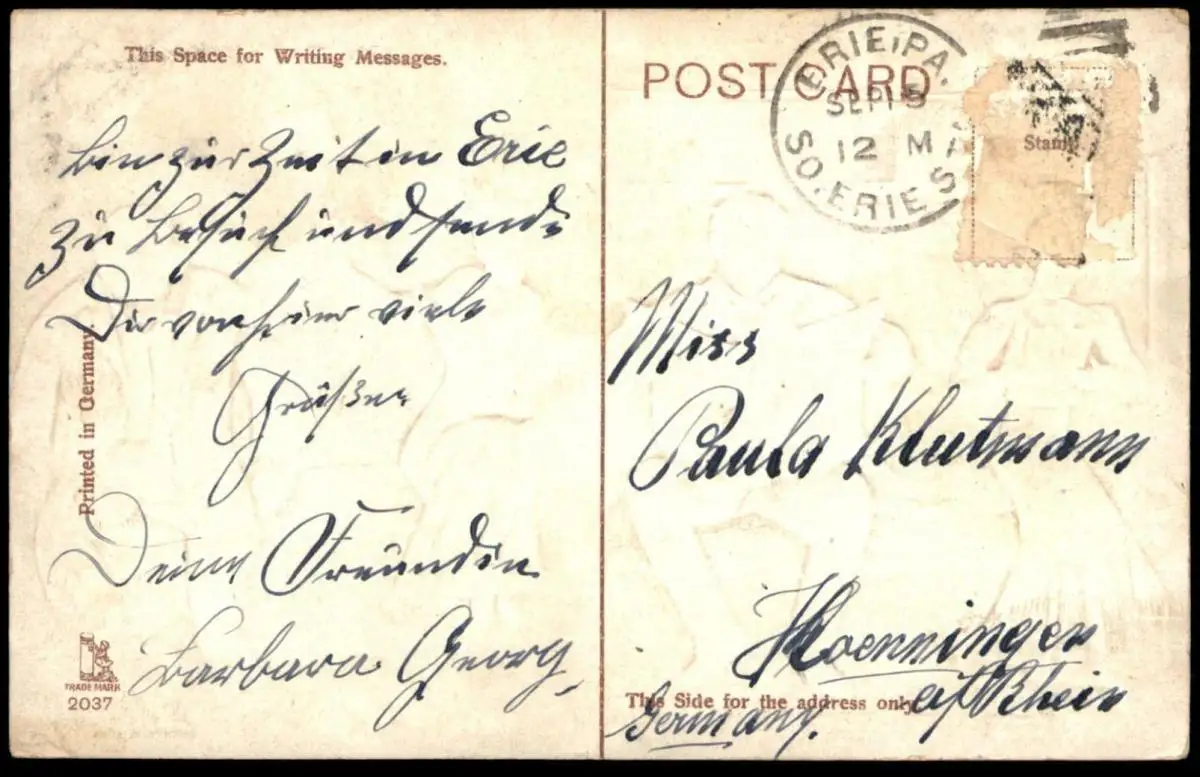 This Space for Writing Messages.
Bin zur Zeit in Erie
zu Besuch und sende
Dir von hier viele
Grüße
Deine Freundin
Barbara Georg
Printed in Germany.
TRADE MARK
2037
POST CARD
ERIE, PA.
SEP 15
12 M
SO. ERIE S
Stamp
Miss
Paula Klutmann
Hoenningen
a/Rhein
Germany.
This Side for the address only